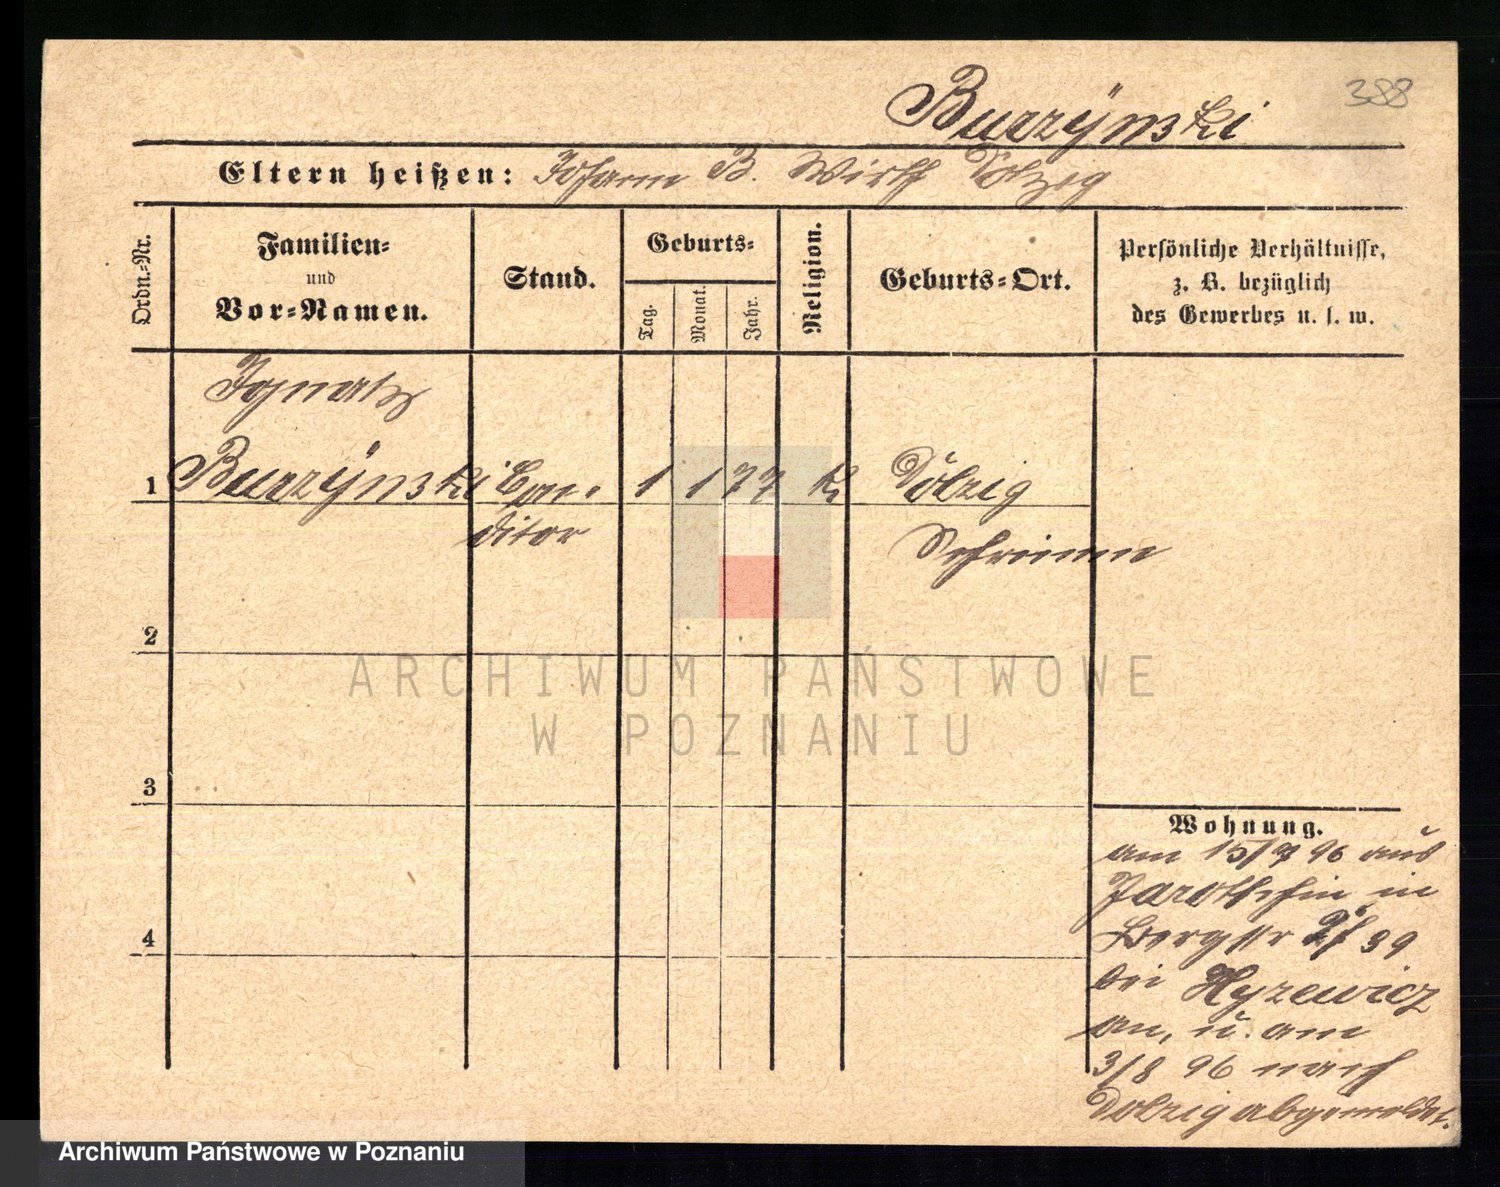 388
Burzÿnski
Eltern heißen: Johann B. Wirth Dolzig
Ordn.=Nr.
Familien=
und
Vor=Namen.
Stand.
Geburts=
Tag.
Monat.
Jahr.
Religion.
Geburts=Ort.
Persönliche Verhältnisse,
z. B. bezüglich
des Gewerbes u. s. w.
Ignatz
1 Burzÿnski Con= 1 1 77 k Dolzig
ditor Schrimm
2
3
4
ARCHIWUM PAŃSTWOWE
W POZNANIU
Wohnung.
am 15/7 96 aus
Jarotschin in
Bergstr 39
bei Hyzewicz
an, u. am
3/8 96 nach
Dolzig abgemeldet.
Archiwum Państwowe w Poznaniu